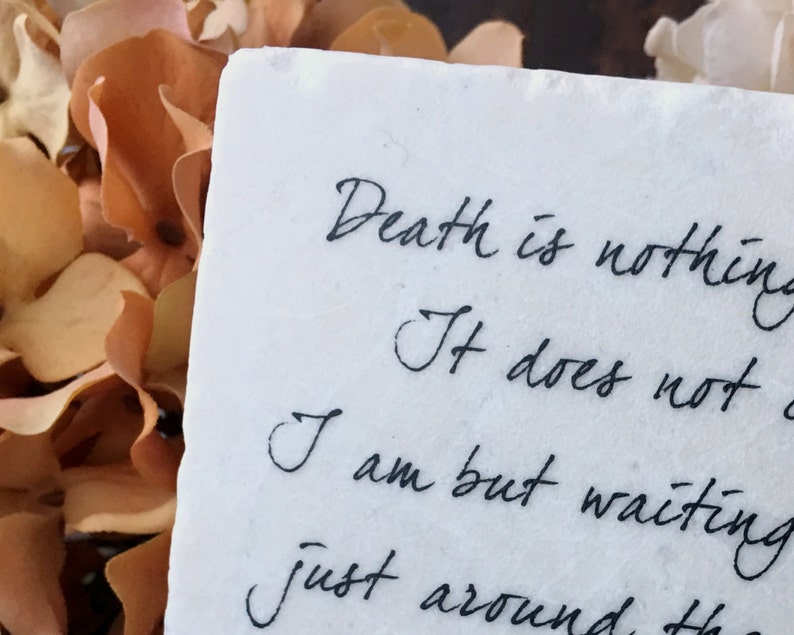 Death is nothing
It does not
I am but waiting
just around the